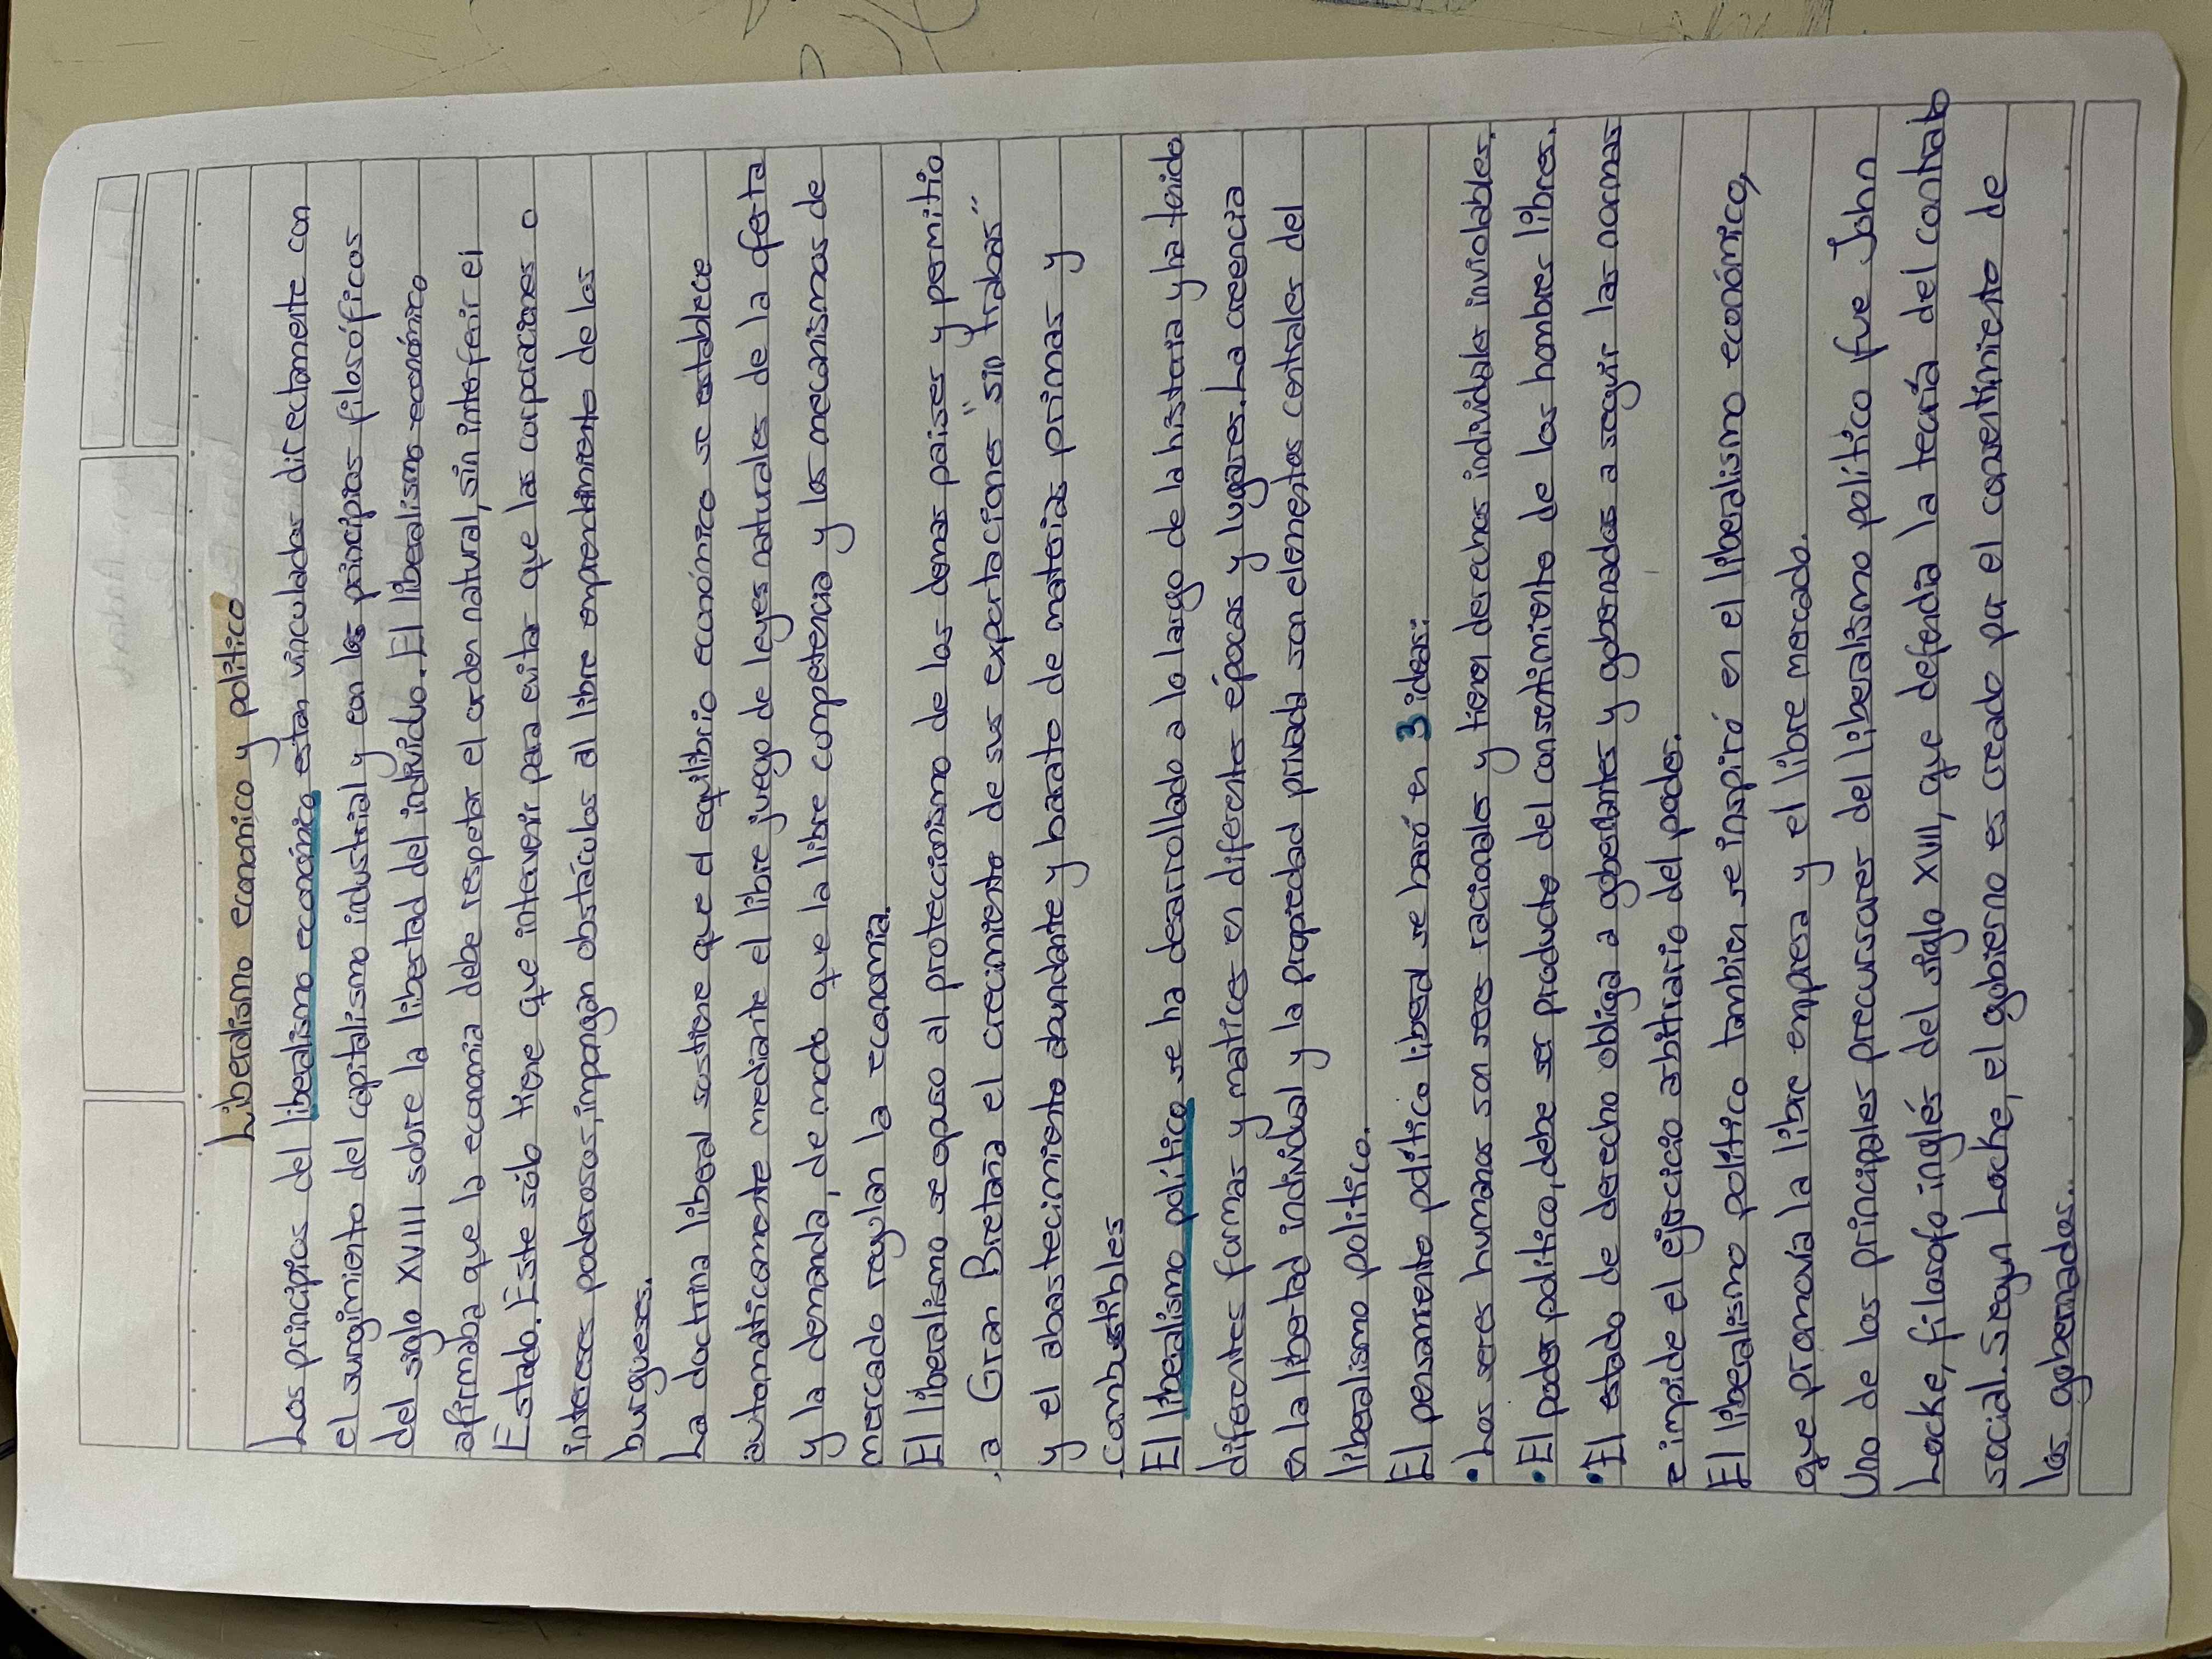 Liberalismo economico y político
Los principios del liberalismo económico estan vinculados directamente con
el surgimiento del capitalismo industrial y con los principios filosóficos
del siglo XVIII sobre la libertad del individuo. El liberalismo económico
afirmaba que la economia debe respetar el orden natural, sin interferir el
Estado. Este sólo tiene que intervenir para evitar que las corporaciones o
intereses poderosos, impongan obstáculos al libre emprendimiento de los
burgueses.
La doctrina liberal sostiene que el equilibrio económico se establece
automaticamente mediante el libre juego de leyes naturales de la oferta
y la demanda, de modo que la libre competencia y los mecanismos de
mercado regulan la economia.
El liberalismo se opuso al proteccionismo de los demas paises y permitio
a Gran Bretaña el crecimiento de sus exportaciones "sin trabas"
y el abastecimiento abundante y barato de materias primas y
combustibles
El liberalismo político se ha desarrollado a lo largo de la historia y ha tenido
diferentes formas y matices en diferentes épocas y lugares. La creencia
en la libertad individual y la propiedad privada son elementos centrales del
liberalismo politico.
El pensamiento político liberal se basó en 3 ideas:
• Los seres humanos son seres racionales y tienen derechos individales inviolables.
• El poder politico, debe ser producto del consentimiento de los hombres libres.
• El estado de derecho obliga a gobernantes y gobernados a seguir las normas
e impide el ejercicio arbitrario del poder.
El liberalismo político tambien se inspiró en el liberalismo económico,
que promovia la libre empresa y el libre mercado.
Uno de los principales precursores del liberalismo político fue John
Locke, filosofo inglés del siglo XVIII, que defendia la teoría del contrato
social. Segun Locke, el gobierno es creado por el consentimiento de
los gobernados...